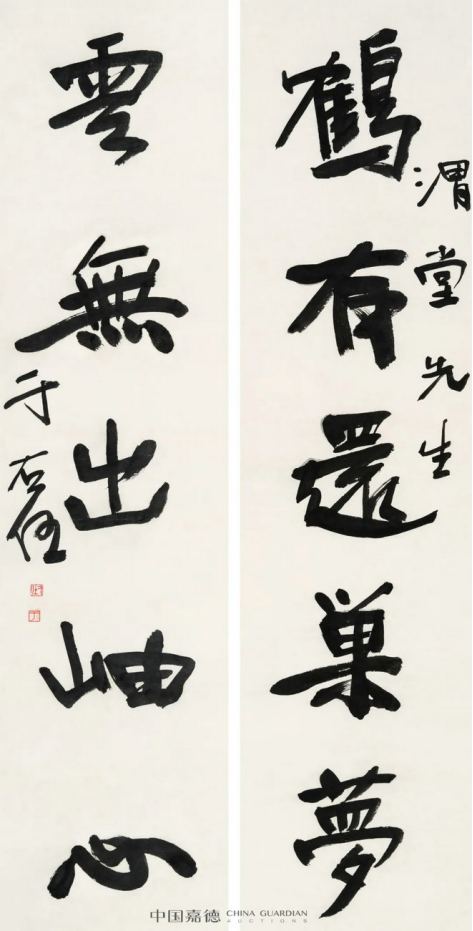 渭堂先生
鶴有還巢夢
雲無出岫心
于右任
中国嘉德 CHINA GUARDIAN
AUCTIONS